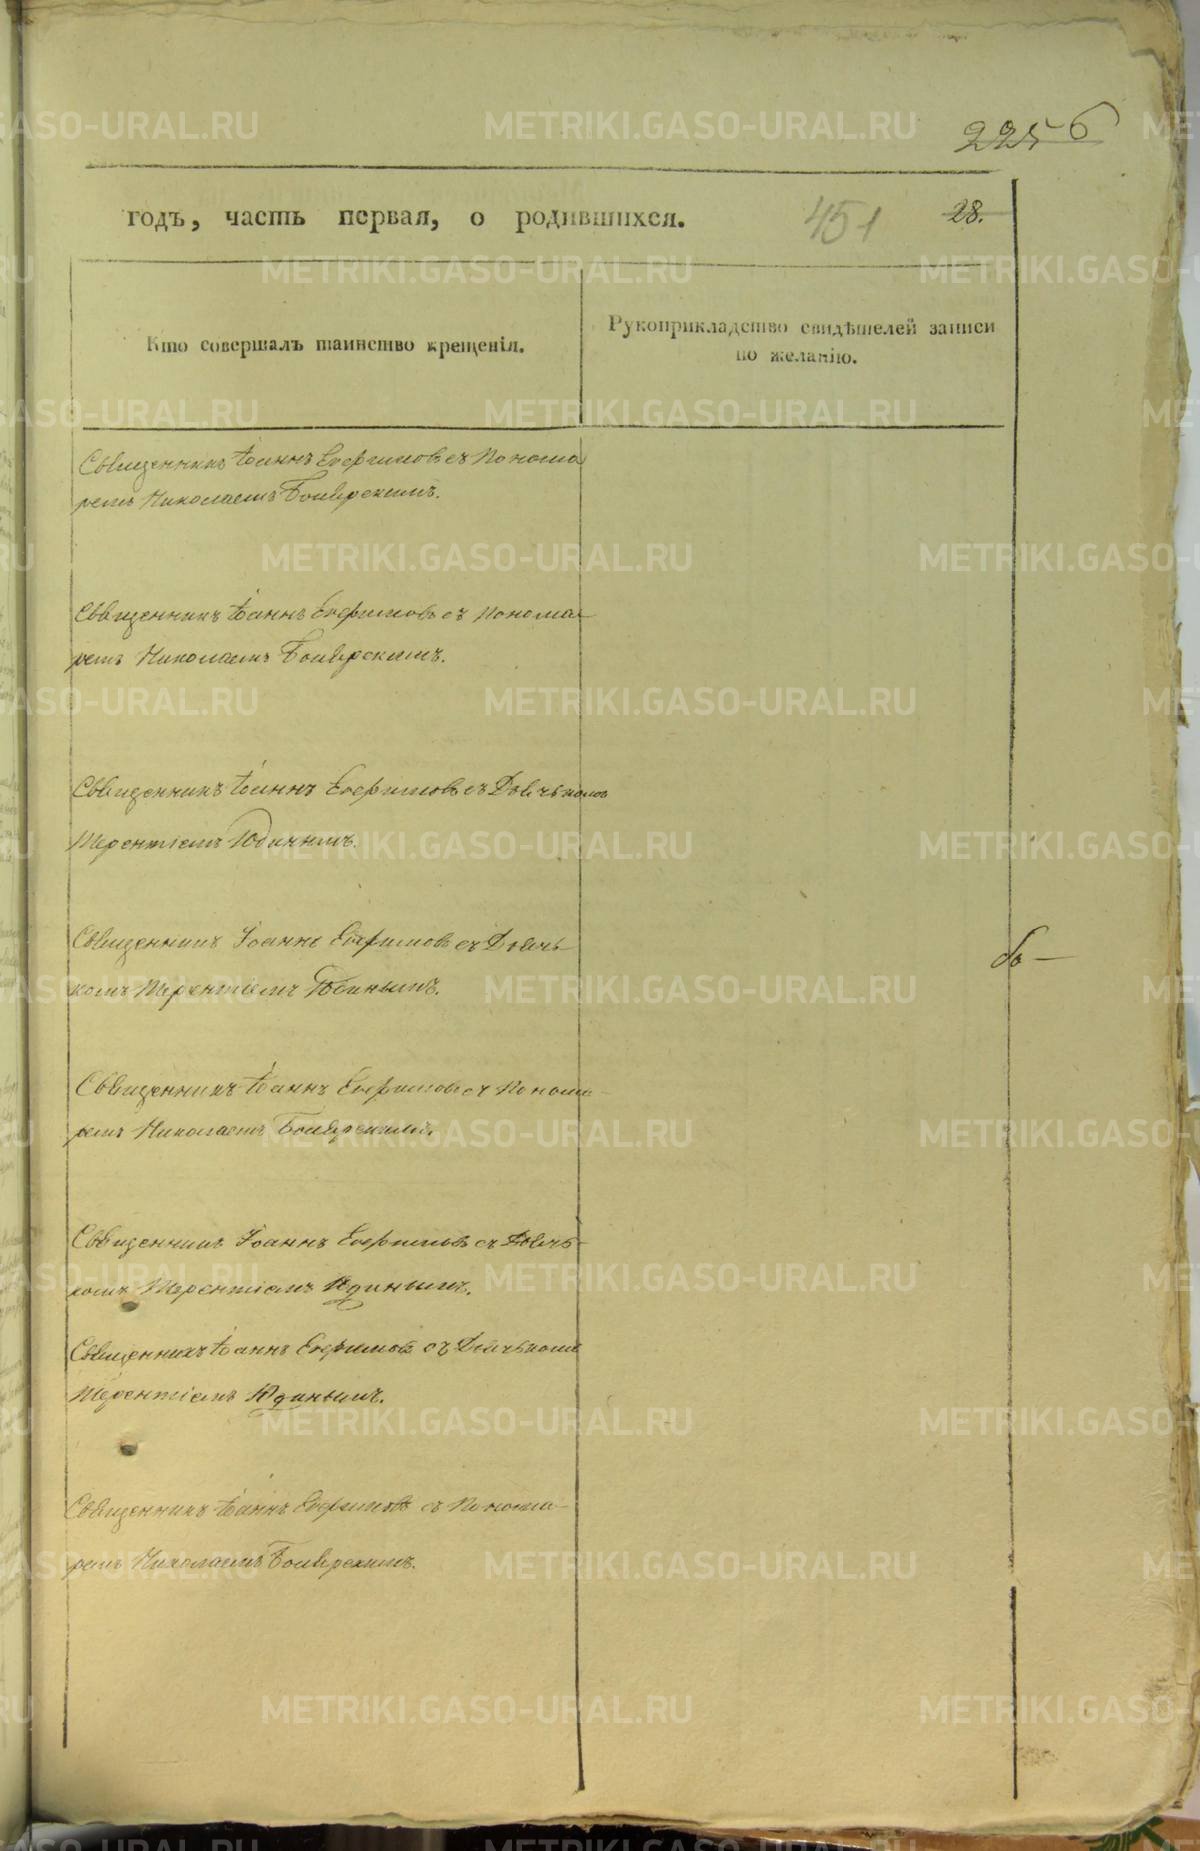 2256
годъ, часть первая, о родившихся.
451
28.
Кто совершалъ таинство крещенія.
Рукоприкладство свидѣтелей записи
по желанію.
Священникъ Іоаннъ Евфимовъ съ Понома
ремъ Николаемъ Боярскимъ.
Священникъ Іоаннъ Евфимовъ съ Понома
ремъ Николаемъ Боярскимъ.
Священникъ Іоаннъ Евфимовъ съ Дьячькомъ
Терентіемъ Юдинымъ.
Священникъ Іоаннъ Евфимовъ съ Дьячь
комъ Терентіемъ Юдинымъ.
Священникъ Іоаннъ Евфимовъ съ Понома
ремъ Николаемъ Боярскимъ.
Священникъ Іоаннъ Евфимовъ съ Дьячь-
комъ Терентіемъ Юдинымъ.
Священникъ Іоаннъ Евфимовъ съ Дьячькомъ
Терентіемъ Юдинымъ.
Священникъ Іоаннъ Евфимовъ съ Понома-
ремъ Николаемъ Боярскимъ.
METRIKI.GASO-URAL.RU